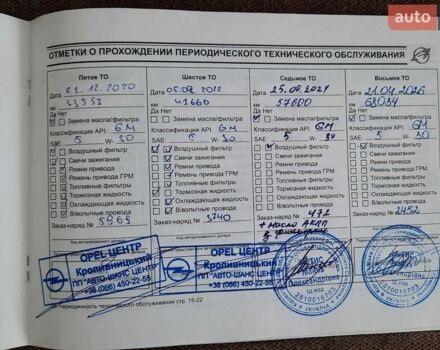 auto
ОТМЕТКИ О ПРОХОЖДЕНИИ ПЕРИОДИЧЕСКОГО ТЕХНИЧЕСКОГО ОБСЛУЖИВАНИЯ
Пятое ТО
Дата 21.12.2020
км 33553
Да Нет
Замена масла/фильтра
Классификация API: GM
SAE: 5 W- 30
Воздушный фильтр
Свечи зажигания
Ремни привода
Ремень привода ГРМ
Топливные фильтры
Тормозная жидкость
Охлаждающая жидкость
В/вольтные провода
Заказ-наряд № 5969
Шестое ТО
Дата 05.09.2022
км 41660
Да Нет
Замена масла/фильтра
Классификация API: GM
SAE: 5 W- 30
Воздушный фильтр
Свечи зажигания
Ремни привода
Ремень привода ГРМ
Топливные фильтры
Тормозная жидкость
Охлаждающая жидкость
В/вольтные провода
Заказ-наряд № 3740
Седьмое ТО
Дата 25.09.2024
км 57600
Да Нет
Замена масла/фильтра
Классификация API: GM
SAE: 5 W- 30
Воздушный фильтр
Свечи зажигания
Ремни привода
Ремень привода ГРМ
Топливные фильтры
Тормозная жидкость
Охлаждающая жидкость
В/вольтные провода
Заказ-наряд № 471
+ Масло АКПП
Восьмое ТО
Дата 21.04.2026
км 68034
Да Нет
Замена масла/фильтра
Классификация API: GM
SAE: 5 W- 30
Воздушный фильтр
Свечи зажигания
Ремни привода
Ремень привода ГРМ
Топливные фильтры
Тормозная жидкость
Охлаждающая жидкость
В/вольтные провода
Заказ-наряд № 2452
OPEL ЦЕНТР
Кропивницький
ПП "АВТО-ШАНС ЦЕНТР"
+38 (066) 450-22-55
OPEL ЦЕНТР
Кропивницький
ПП "АВТО-ШАНС ЦЕНТР"
+38 (066) 450-22-55
периодичность технического обслуживания стр. 15-22